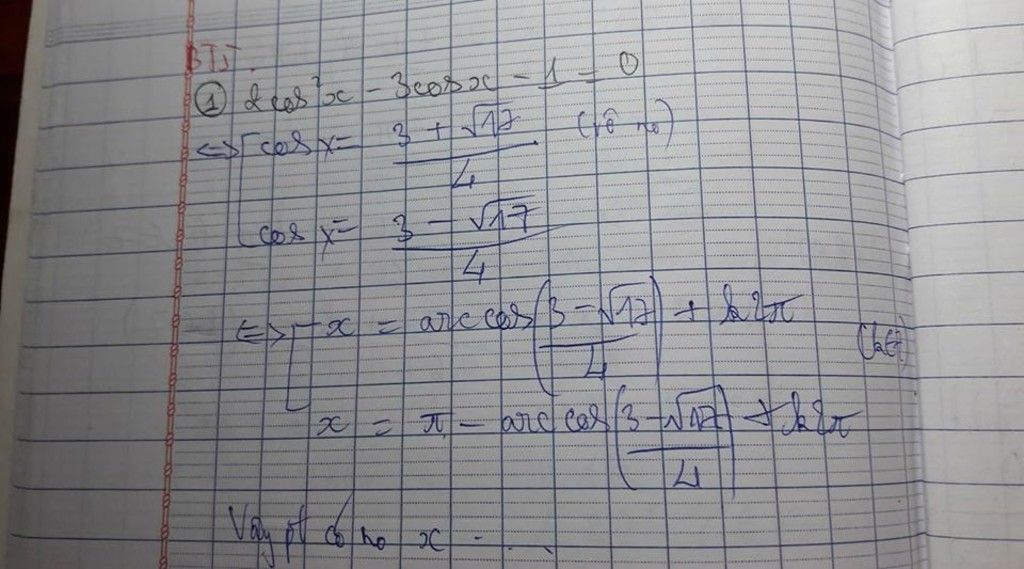 BTJ.
① 2cos²x - 3cosx - 1 = 0
<=> [ cos x = (3 + √17)/4 (vô no)
cos x = (3 - √17)/4
<=> [ x = arccos((3 - √17)/4) + k2π
(k∈Z)
x = π - arccos((3 - √17)/4) + k2π
Vậy pt có no x = ....